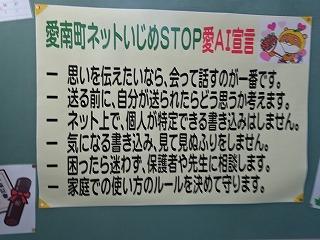 愛南町ネットいじめSTOP愛AI宣言
一 思いを伝えたいなら、会って話すのが一番です。
一 送る前に、自分が送られたらどう思うか考えます。
一 ネット上で、個人が特定できる書き込みはしません。
一 気になる書き込み、見て見ぬふりをしません。
一 困ったら迷わず、保護者や先生に相談します。
一 家庭での使い方のルールを決めて守ります。